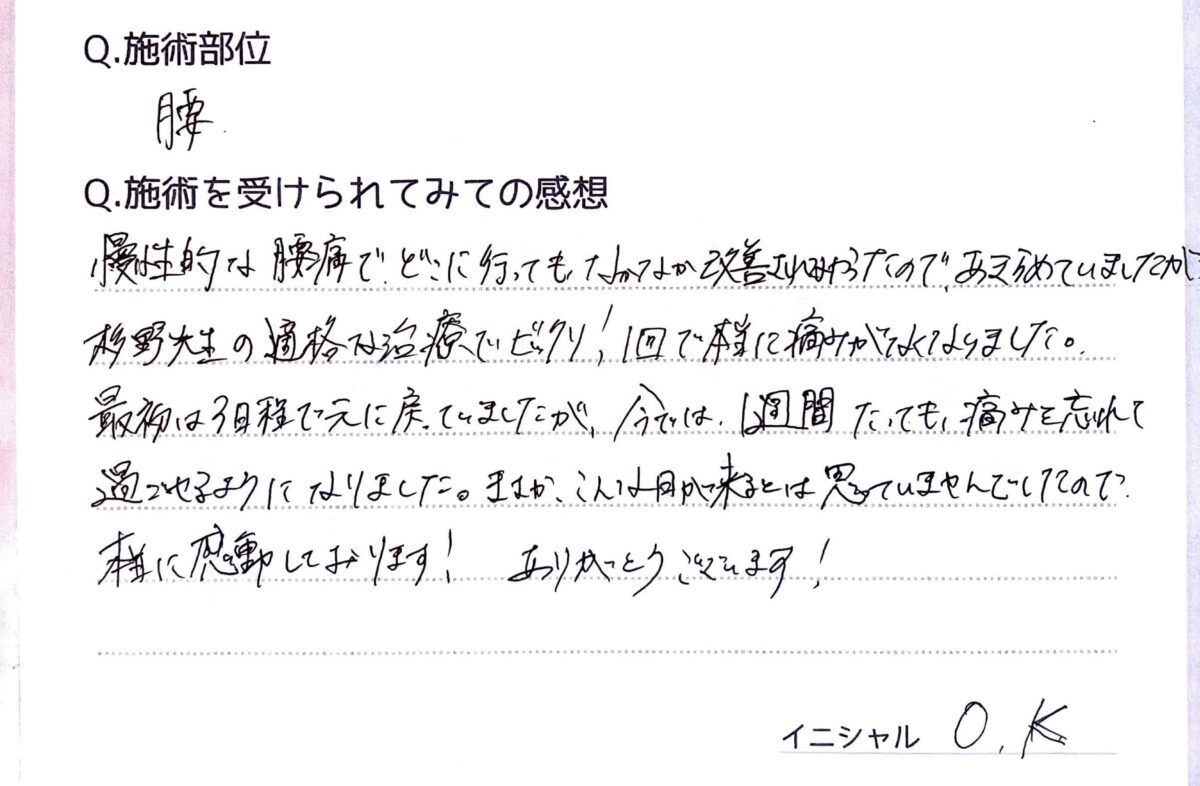 Q.施術部位
腰
Q.施術を受けられてみての感想
慢性的な腰痛で、どこに行っても、なかなか改善されなかったので、あきらめていましたが
杉野先生の適格な治療でビックリ！1回で本当に痛みがなくなりました。
最初は3日程で元に戻っていましたが、今では、1週間たっても、痛みを忘れて
過ごせるようになりました。まさか、こんな日が来るとは思っていませんでしたので
本当に感動しております！ ありがとうございます！
イニシャル O.K